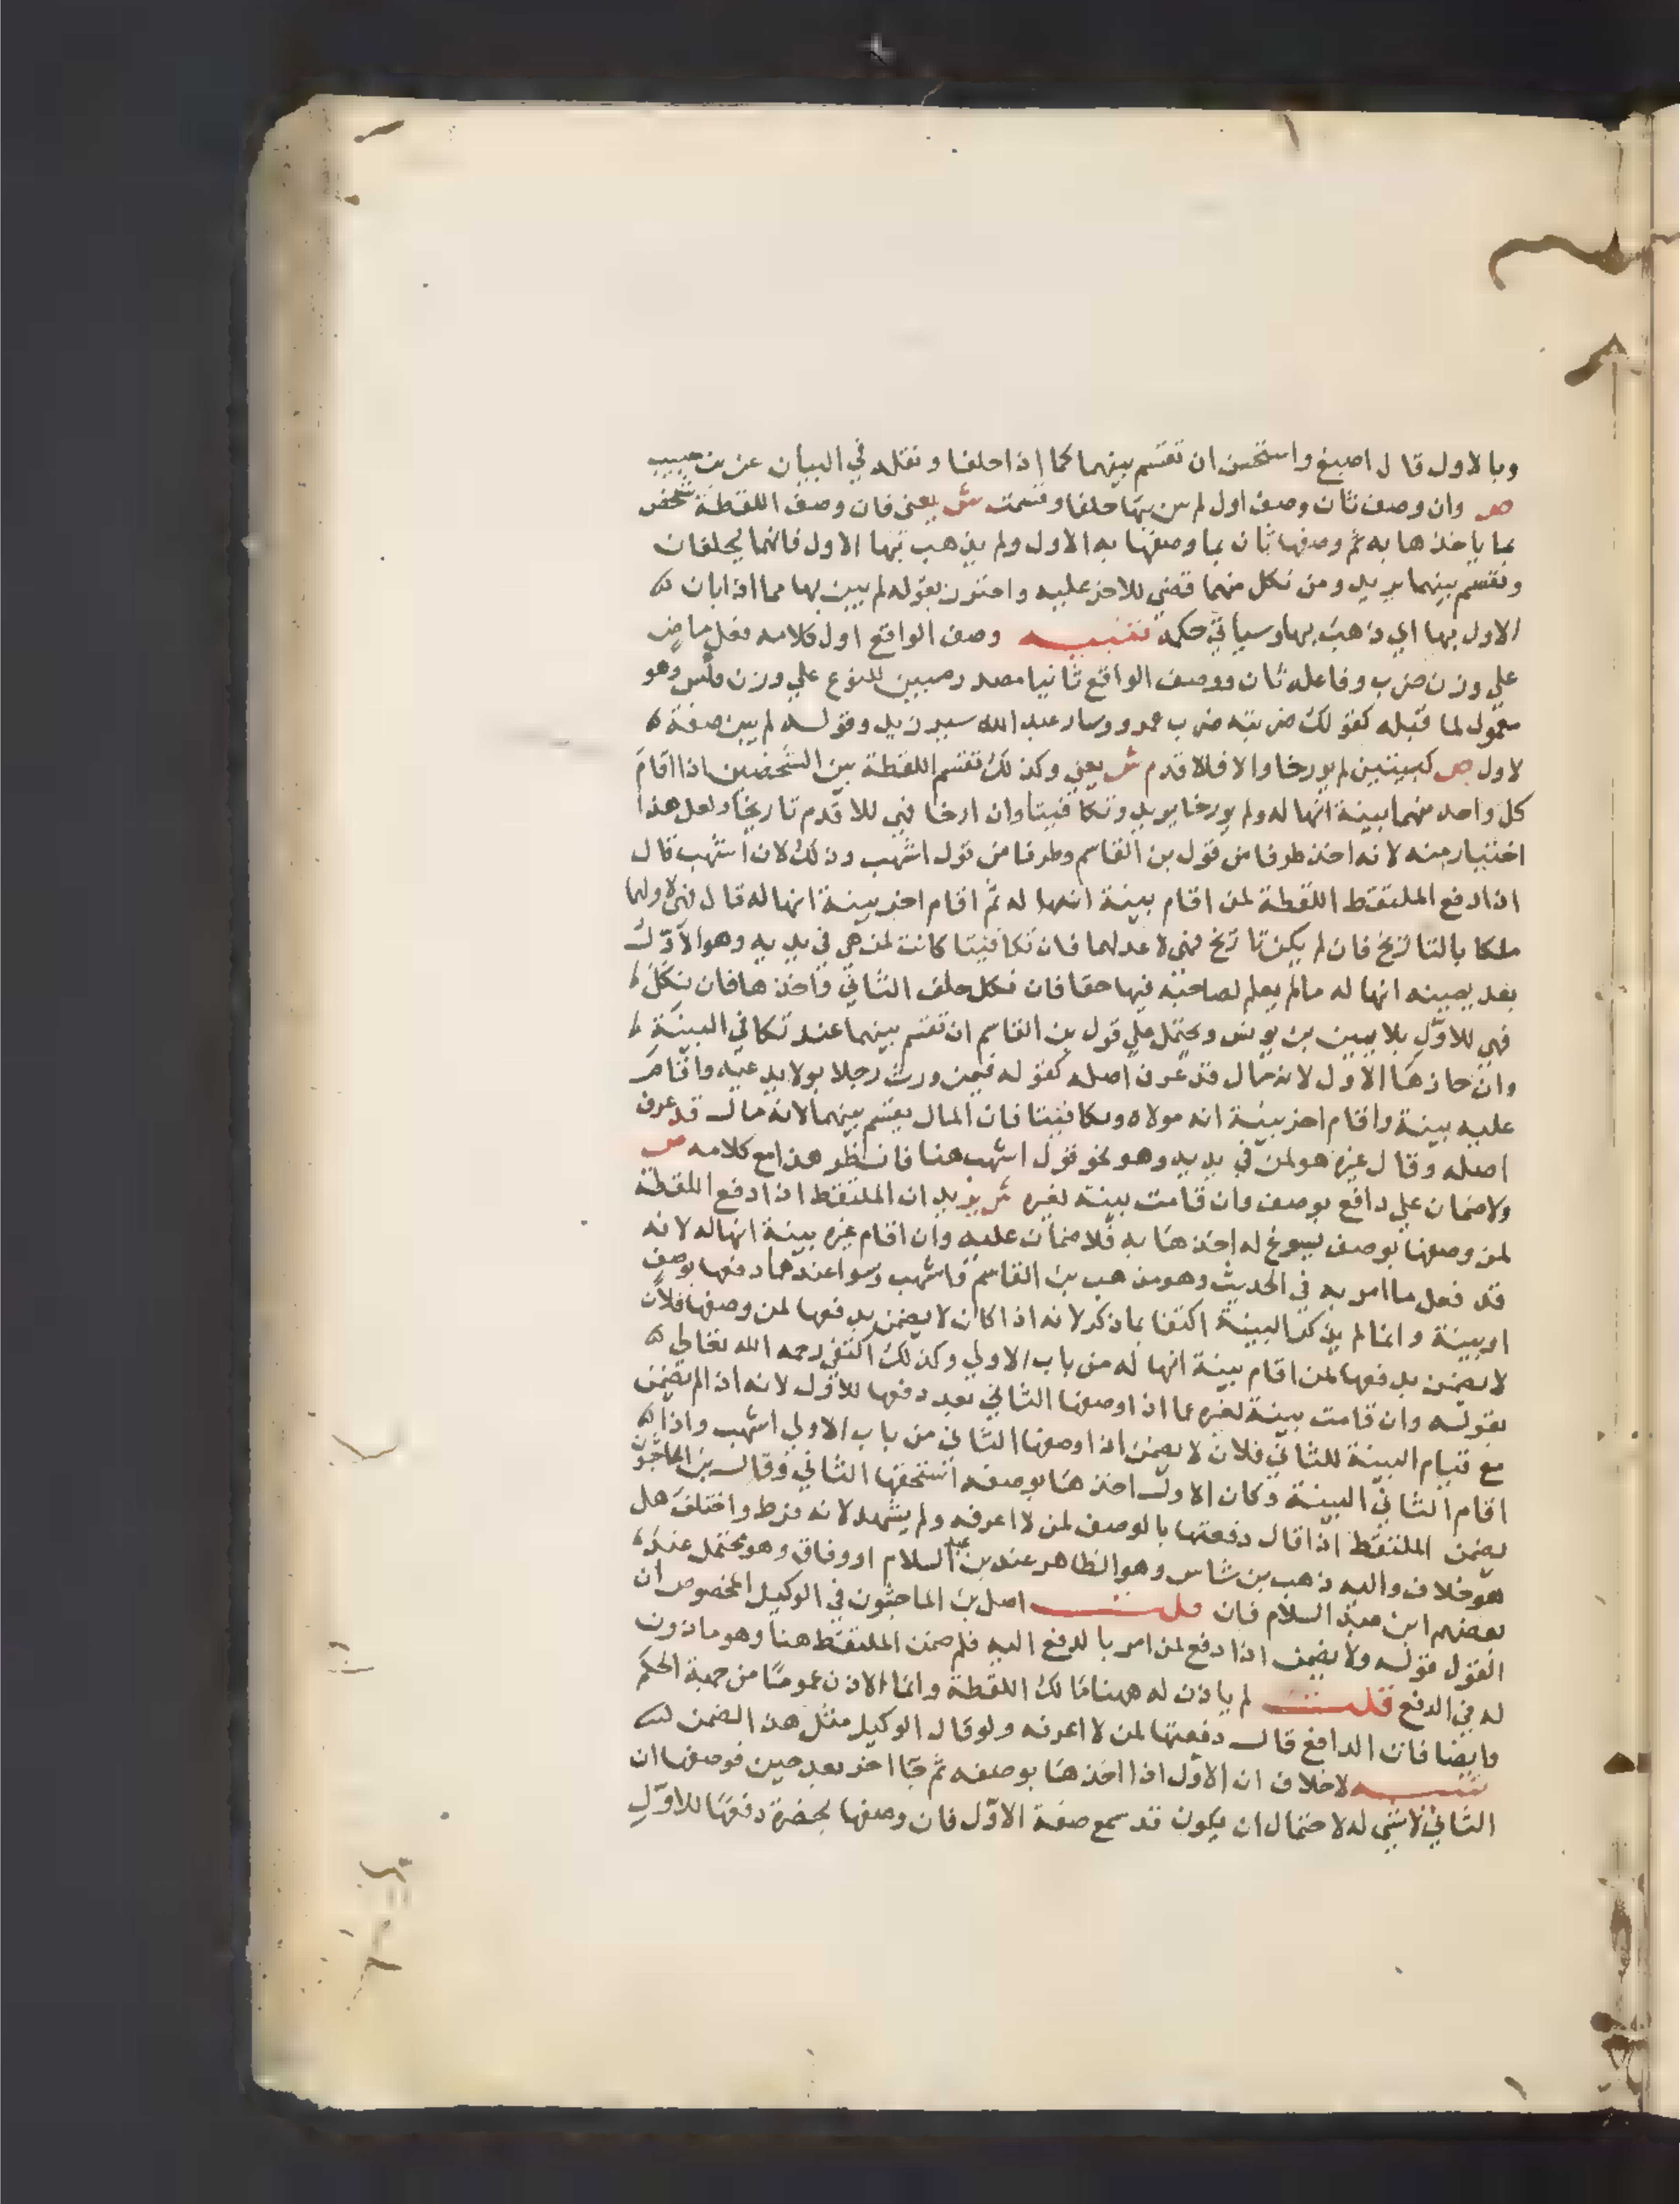 وبالاول قال اصبغ واستحسن ان تقسم بينهما كما اذا حلفا ونقله في البيان عن بن حبيب
ص وان وصف ثان وصف اول لم يبن بها حلفا وقسمت ش يعني فان وصف اللقطة شخص
بما ياخذها به ثم وصفها ثان بما وصفها به الاول ولم يذهب بها الاول فانهما يحلفان
وتقسم بينهما يريد ومن نكل منهما قضي للاخر عليه واحترز بقوله لم يبين بها مما اذا بان
الاول بها اي ذهب بها وسياتي حكمه تنبيه وصف الواقع اول كلامه فعل ماض
علي وزن ضرب وفاعله ثان ووصف الواقع ثانيا مصدر مبين للنوع علي وزن فلس وهو
معمول لما قبله كقولك ضربته ضرب عمرو وسار عبد الله سير زيد وقوله لم يبن صفة
لاول ص كبينتين لم يورخا والا فللاقدم ش يعني وكذلك تقسم اللقطة بين الشخصين اذا اقام
كل واحد منهما بينة انها له ولم يورخا يريد وتكافيتا وان ارخا فهي للاقدم تاريخا ولعل هذا
اختيار منه لانه اخذ طرفا من قول بن القاسم وطرفا من قول اشهب وذلك لان اشهب قال
اذا دفع الملتقط اللقطة لمن اقام بينة انها له ثم اقام اخر بينة انها له قال فهي لاولهما
ملكا بالتاريخ فان لم يكن تاريخ فهي لاعدلهما فان تكافيتا كانت لمن هي في يديه وهو الاول
بعد يمينه انها له ما لم يعلم لصاحبه فيها حقا فان نكل حلف الثاني واخذها فان نكل
فهي للاول بلا يمين بن يونس ويحتمل علي قول بن القاسم ان تقسم بينهما عند تكافي البينة
وان حازها الاول لانه مال قد عرف اصله كقوله فيمن ورث رجلا بولا يدعيه واقام
عليه بينة واقام اخر بينة انه مولاه وتكافيتا فان المال يقسم بينهما لانه مال قد عرف
اصله وقال غيره هو لمن في يديه وهو نحو قول اشهب هنا فانظر هذا مع كلامه ص
ولا ضمان علي دافع بوصف وان قامت بينة لغيره ش يريد ان الملتقط اذا دفع اللقطة
لمن وصفها بوصف يسوغ له اخذها به فلا ضمان عليه وان اقام غيره بينة انها له لانه
قد فعل ما امر به في الحديث وهو مذهب بن القاسم واشهب وسوا عندهما دفعها بوصف
او بينة وانما لم يذكر البينة اكتفا بما ذكر لانه اذا كان لا يضمن بدفعها لمن وصفها فلان
لا يضمن بدفعها لمن اقام بينة انها له من باب الاولي وكذلك اكتفي رحمه الله تعالي
بقوله وان قامت بينة لغيره عما اذا وصفها الثاني بعد دفعها للاول لانه اذا لم يضمن
مع قيام البينة للثاني فلان لا يضمن اذا وصفها الثاني من باب الاولي اشهب واذا
اقام الثاني البينة وكان الاول اخذها بوصفه استحقها الثاني وقال بن الماجشون
يضمن الملتقط اذا قال دفعتها بالوصف لمن لا اعرفه ولم يشهد لانه فرط واختلف هل
هو خلاف واليه ذهب بن شاس وهو الظاهر عند بن عبد السلام او وفاق وهو محتمل عند
بعضهم ابن عبد السلام فان قلت اصل بن الماجشون في الوكيل المخصوص ان
القول قوله ولا يضمن اذا دفع لمن امر بالدفع اليه فلم ضمن الملتقط هنا وهو ماذون
له في الدفع قلت لم ياذن له هنا مالك اللقطة وانما الاذن عموما من جهة الحكم
وايضا فان الدافع قال دفعتها لمن لا اعرفه ولو قال الوكيل مثل هذا لضمن
تنبيه لا خلاف ان الاول اذا اخذها بوصفه ثم جا اخر بعد حين فوصفها ان
الثاني لا شي له لاحتمال ان يكون قد سمع صفة الاول فان وصفها بحضرة دفعها للاول